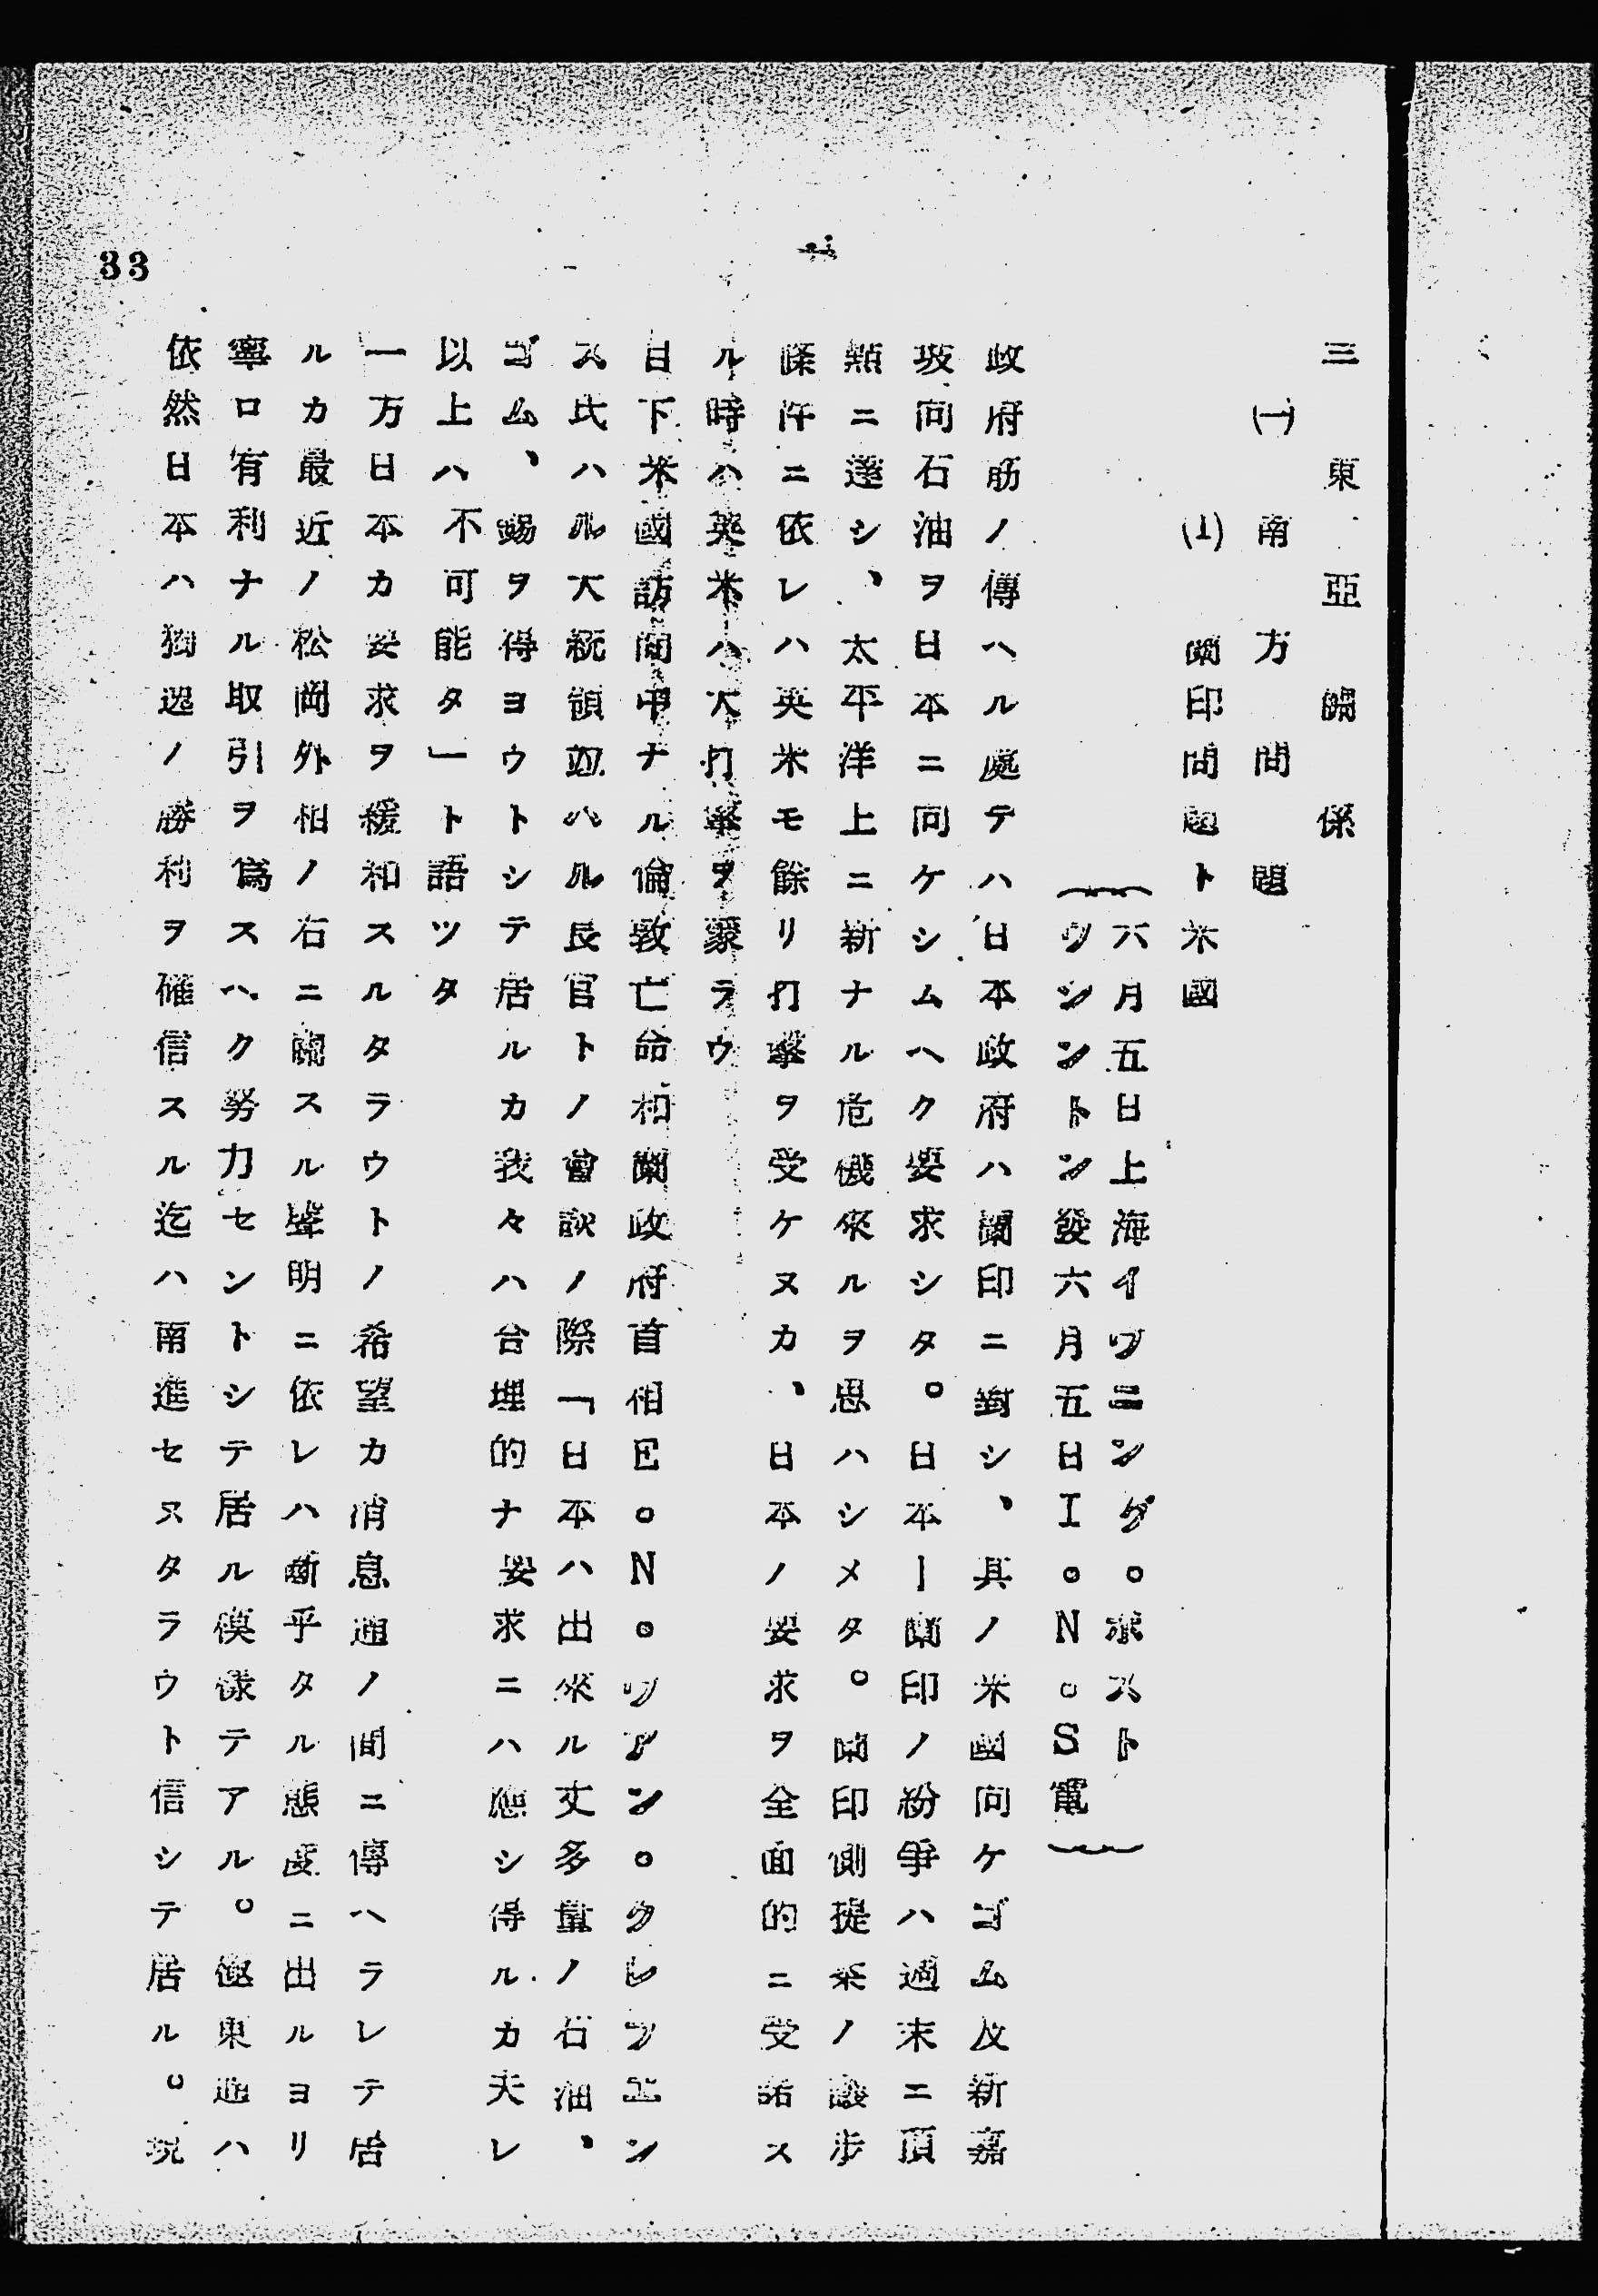 三 東亞關係
㈠ 南方問題
(1) 蘭印問題ト米國
(六月五日上海イヴニング。ポスト
ワシントン發六月五日I。N。S電)
政府筋ノ傳ヘル處テハ日本政府ハ蘭印ニ對シ、其ノ米國向ケゴム及新嘉
坡向石油ヲ日本ニ向ケシムヘク要求シタ。日本ー蘭印ノ紛爭ハ週末ニ頂
點ニ達シ、太平洋上ニ新ナル危機來ルヲ思ハシメタ。蘭印側提案ノ讓步
條件ニ依レハ英米モ餘リ打擊ヲ受ケヌカ、日本ノ要求ヲ全面的ニ受諾ス
ル時ハ英米ハ大打擊ヲ蒙ラウ
目下米國訪問中ナル倫敦亡命和蘭政府首相E。N。ヴアン。クレフエン
ス氏ハルーズヴエルト大統領竝ハル長官トノ會談ノ際「日本ハ出來ル丈多量ノ石油、
ゴム、錫ヲ得ヨウトシテ居ルカ我々ハ合理的ナ要求ニハ應シ得ルカ夫レ
以上ハ不可能タ」ト語ツタ
一方日本カ要求ヲ緩和スルタラウトノ希望カ消息通ノ間ニ傳ヘラレテ居
ルカ最近ノ松岡外相ノ右ニ關スル聲明ニ依レハ斷乎タル態度ニ出ルヨリ
寧ロ有利ナル取引ヲ爲スヘク努力セントシテ居ル模樣テアル。極東通ハ
依然日本ハ獨逸ノ勝利ヲ確信スル迄ハ南進セヌタラウト信シテ居ル。現
33